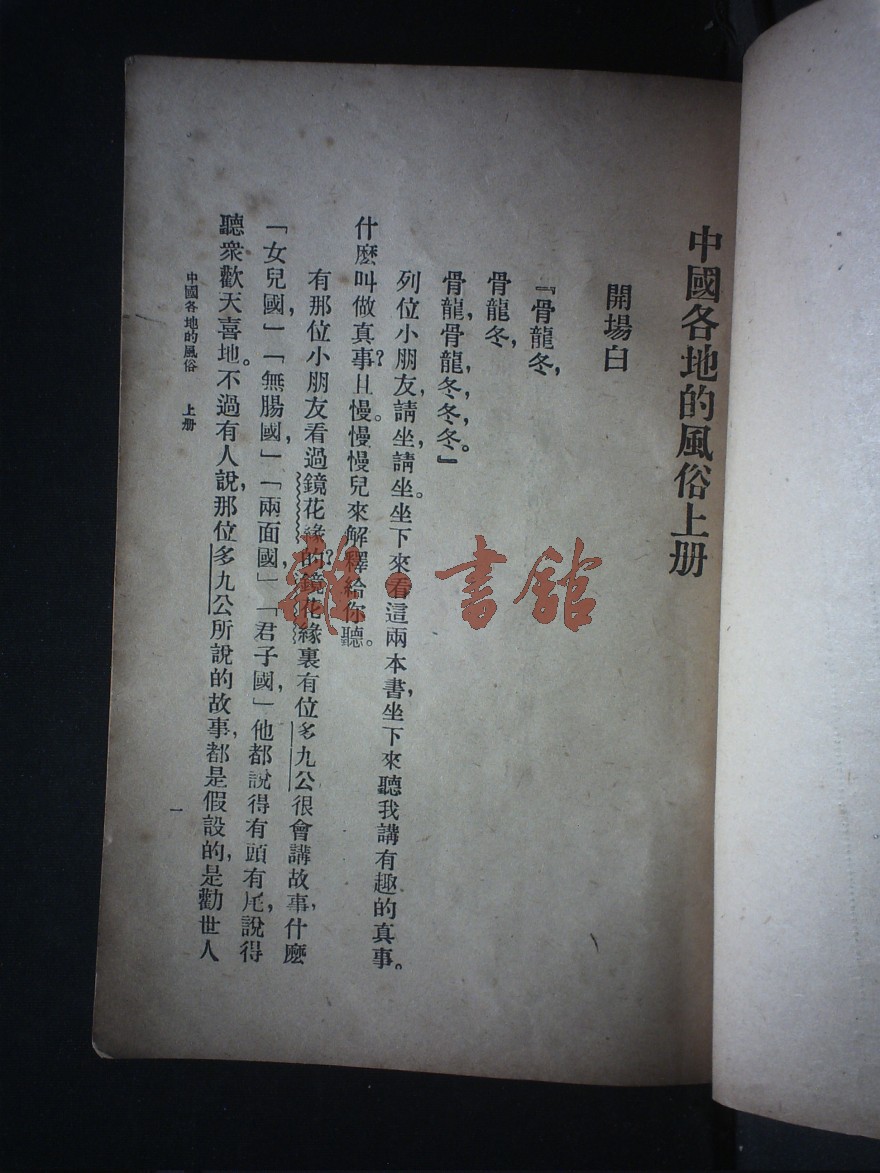 中國各地的風俗上册
開場白
『骨龍冬，
骨龍冬，
骨龍，骨龍，冬，冬，冬。』
列位小朋友，請坐，請坐。坐下來看這兩本書，坐下來聽我講有趣的真事。
什麼叫做真事？且慢。慢慢兒來解釋給你聽。
有那位小朋友看過鏡花緣的？鏡花緣裏有位多九公很會講故事，什麼
「女兒國」，「無腸國」，「兩面國」，「君子國」，他都說得有頭有尾，說得
聽衆歡天喜地。不過有人說，那位多九公所說的故事，都是假設的，是勸世人
中國各地的風俗　上册
一
雜·書館